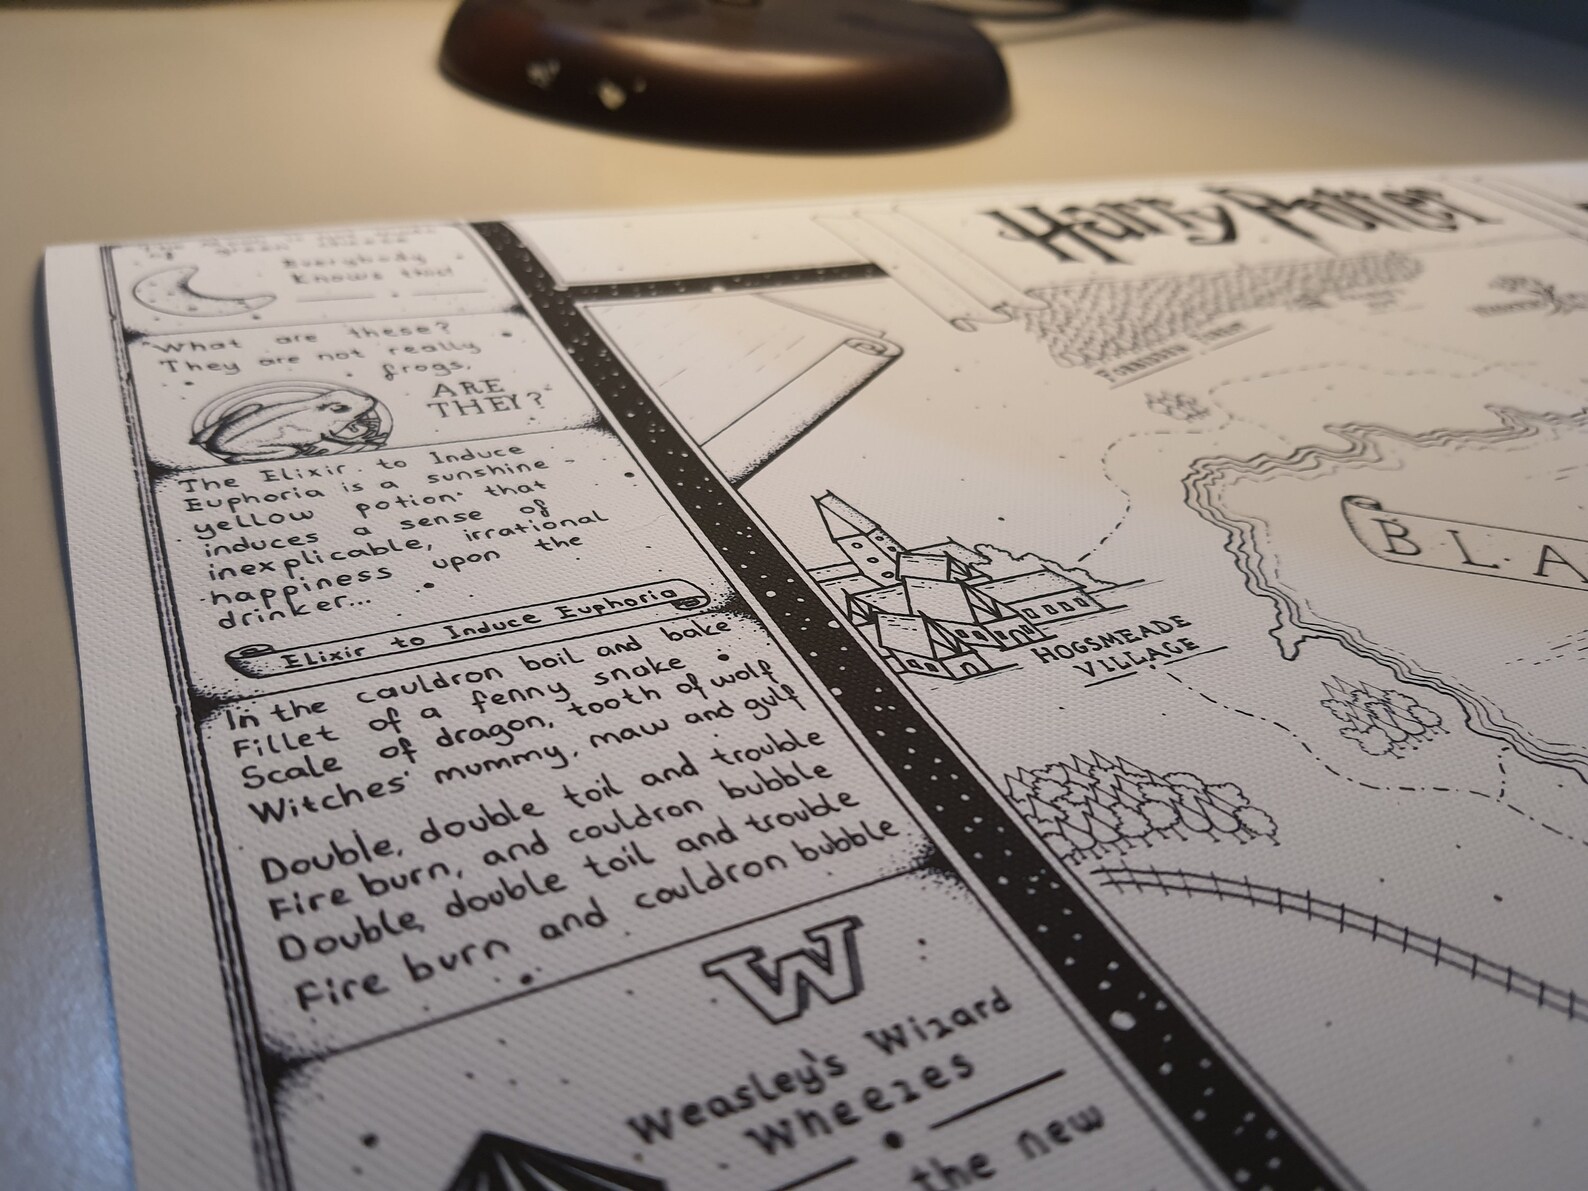 Harry Potter
of green cheese
Everybody
knows this!
What are these?
They are not really
frogs,
ARE
THEY?
The Elixir to Induce
Euphoria is a sunshine-
yellow potion that
induces a sense of
inexplicable, irrational
happiness upon the
drinker...
Elixir to Induce Euphoria
In the cauldron boil and bake
Fillet of a fenny snake
Scale of dragon, tooth of wolf
Witches' mummy, maw and gulf
Double, double toil and trouble
Fire burn, and cauldron bubble
Double, double toil and trouble
Fire burn and cauldron bubble
W
Weasley's Wizard
Wheezes
the new
FORBIDDEN FOREST
BLA
HOGSMEADE
VILLAGE